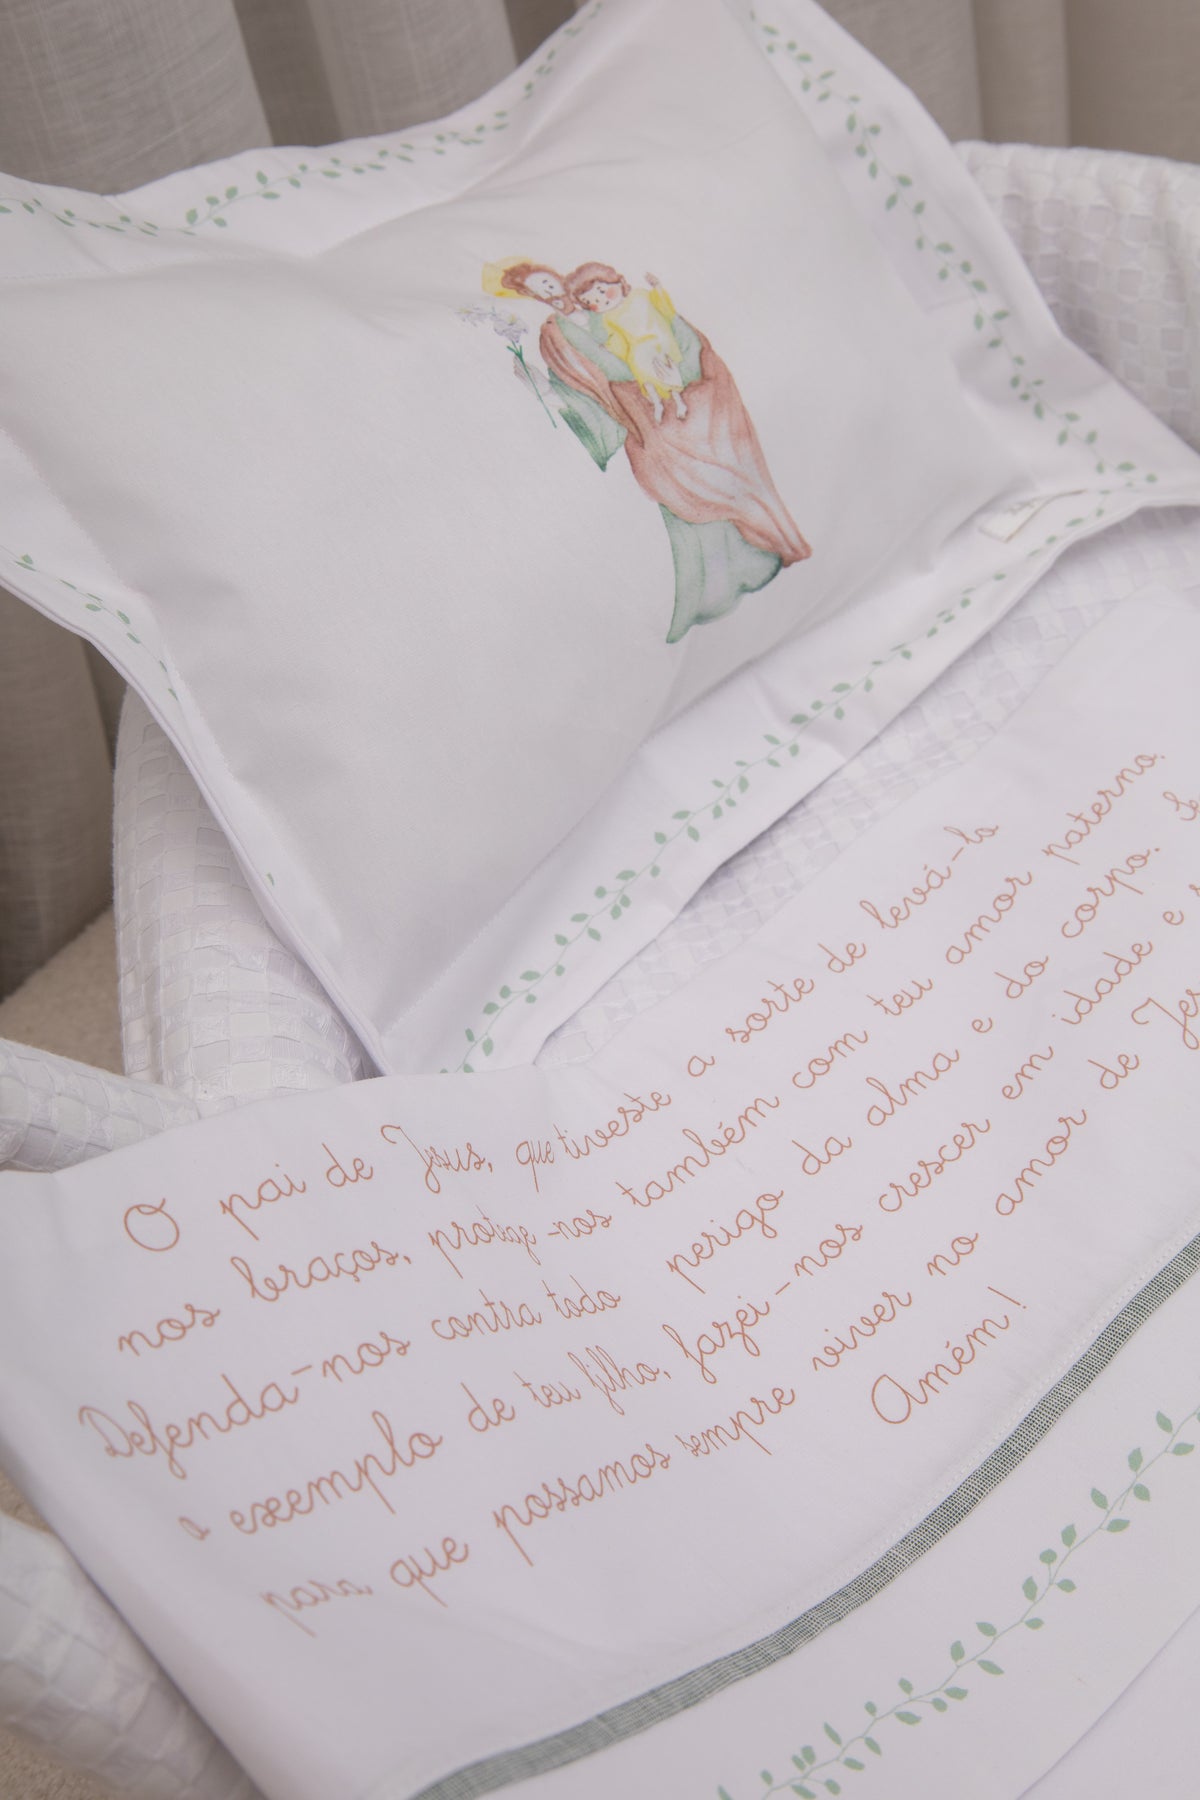 O pai de Jesus, que tiveste a sorte de levá-lo
nos braços, protege-nos também com teu amor paterno.
Defenda-nos contra todo perigo da alma e do corpo.
a exemplo de teu filho, fazei-nos crescer em idade e
para que possamos sempre viver no amor de
Amém!